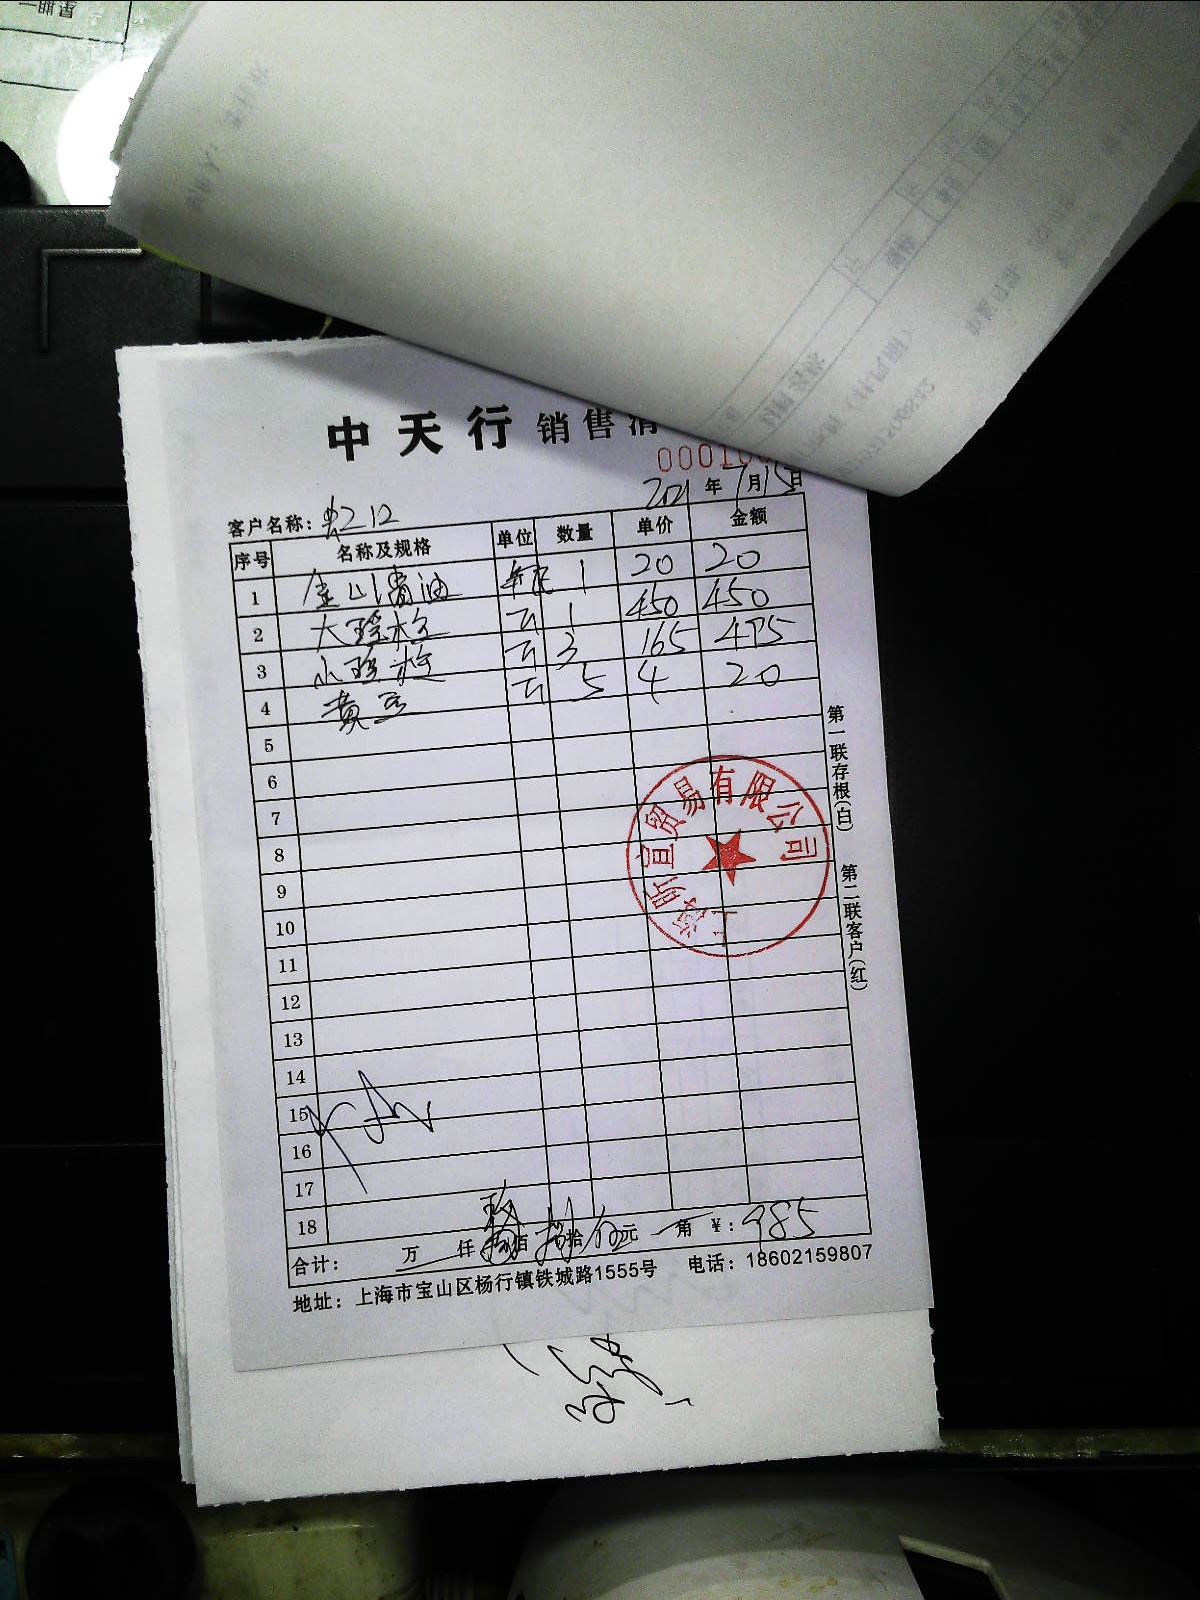 中天行 销售清
2021年7月15日
客户名称：虹口
序号 名称及规格 单位 数量 单价 金额
1 金山酱油 瓶 1 20 20
2 大瑶柱 斤 1 450 450
3 小瑶柱 斤 3 165 495
4 黄豆 斤 5 4 20
5
6
7
8
9
10
11
12
13
14
15
16
17
18
合计： 万 仟 玖佰捌拾伍元 角 ¥：985
地址：上海市宝山区杨行镇铁城路1555号 电话：18602159807
第一联存根(白) 第二联客户(红)
上海昕宜贸易有限公司